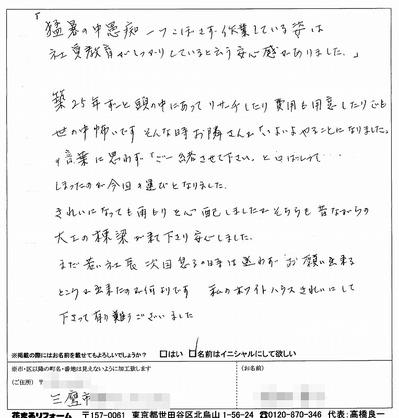 「猛暑の中愚痴一つこぼさず作業している姿は
社員教育がしっかりしていると云う安心感がありました。」
築25年ずっと頭の中にあってリサーチしたり費用も用意したりでも
世の中怖いです そんな時お隣さんが「いよいよやることになりました。」
の言葉に思わず「ご一緒させて下さい。」と口ばしって・・
しまったのが今回の運びとなりました。
きれいになっても雨もりとか心配しましたがそちらも昔ながらの
大工の棟梁が来て下さり安心しました。
まだ若い社長 次回 の時は迷わずお願い出来る
ところが出来たのが何よりです 私のホワイトハウスきれいにして
下さって有り難うございました
※掲載の際にはお名前を載せてもよろしいでしょうか? □はい □名前はイニシャルにして欲しい
※市・区以降の町名・番地は見えないように加工致します
(ご住所) 〒 (お名前)
三鷹市
花まるリフォーム 〒157-0061 東京都世田谷区北烏山1-56-24 ☎0120-870-346 代表:高橋良一